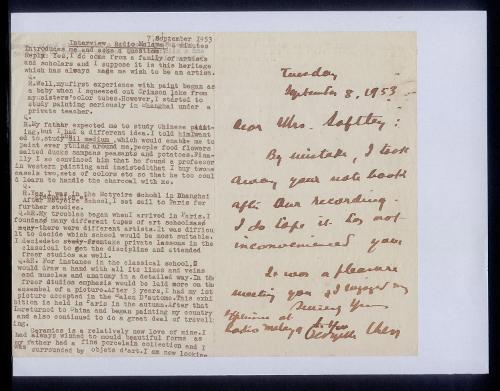 7 September 1953
Interview Radio Malaya minutes
Introduces me and asks a Question:
Reply: Yes, I do come from a family of artists
and scholars and I suppose it is this heritage
which has always made me wish to be an artist.
Q.
R. Well, my first experience with paint began as
a baby when I squeezed out Crimson lake from
my sisters' color tubes. However, I started to
study painting seriously in Shanghai under a
private teacher.
Q.
R. My father expected me to study Chinese paint-
ing, but I had a different idea. I told him I want
ed to study oil medium, which would enable me to
paint everything around me, people food flowers
salted ducks sampans peasants and potatoes. Fina-
lly I so convinced him that he found a professor
in western painting and insisted that I buy two
easels two, sets of colors etc so that he too coul
d learn to handle the charcoal with me.
Q.
R. Yes, I was in the Motyeire School in Shanghai
After Motyeire School, I set sail to Paris for
further studies.
Q.&R. My troubles began when I arrived in Paris. I
found so many different types of art schools and
many there were different artists. It was difficu
lt to decide which school would be most suitable.
I decided to study from take private lessons in the
classical to get the discipline and attended
freer studios as well.
Q.&R. For instance in the classical school, I
would draw a hand with all its lines and veins
and muscles and anatomy in a detailed way. In the
freer studios emphasis would be laid more on the
ensembel of a picture. After 3 years, I had my 1st
picture accepted in the "Salon D'automo. This exhi
bition is held in Paris in the autumn. After that
I returned to China and began painting my country
and also continued to do a great deal of travell-
ing.
Ceramics is a relatively new love of mine. I
had always wished to mould beautiful forms as
my father had a fine porcelain collection and I
was surrounded by objets d'art. I am now looking
Tuesday
September 8, 1953
Dear Mrs. Softley:
By mistake, I took
away your note book
after our recording.
I do hope it has not
inconvenienced you.
It was a pleasure
meeting you
Sincerely Yours
Georgette Chen
Radio Malaya